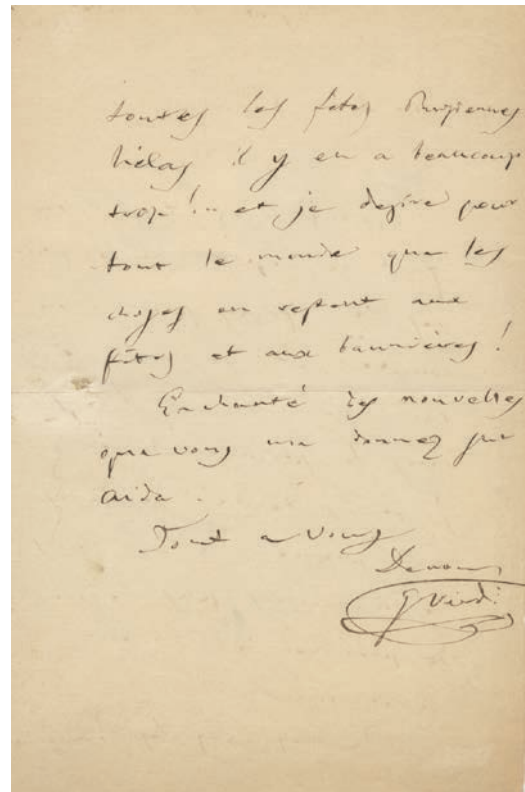 toutes les fêtes Russiennes
hélas il y en a beaucoup
trop!.. et je desire pour
tout le monde que les
choses en restent aux
fêtes et aux bannières!
Enchanté des nouvelles
que vous me donnez sur
Aida.
Tout a Vous
Devoué
G Verdi